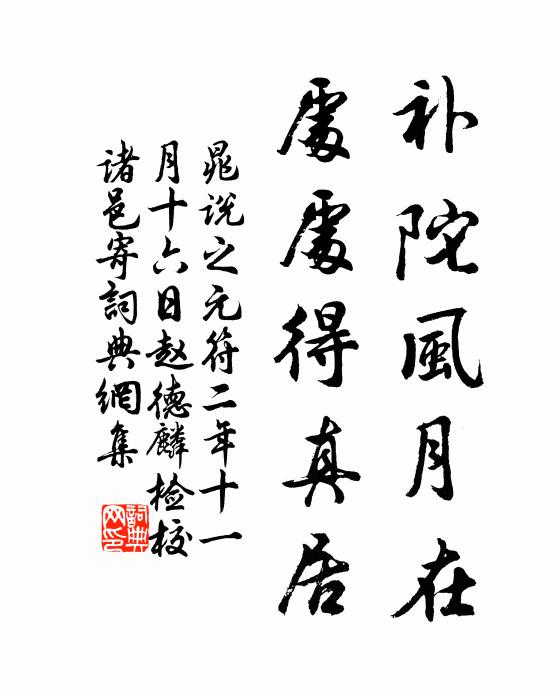 补陀風月在
處處得真居
晁说之元符二年十一
月十六日赵德麟检校
诸邑寄詞典網集
詞典网印